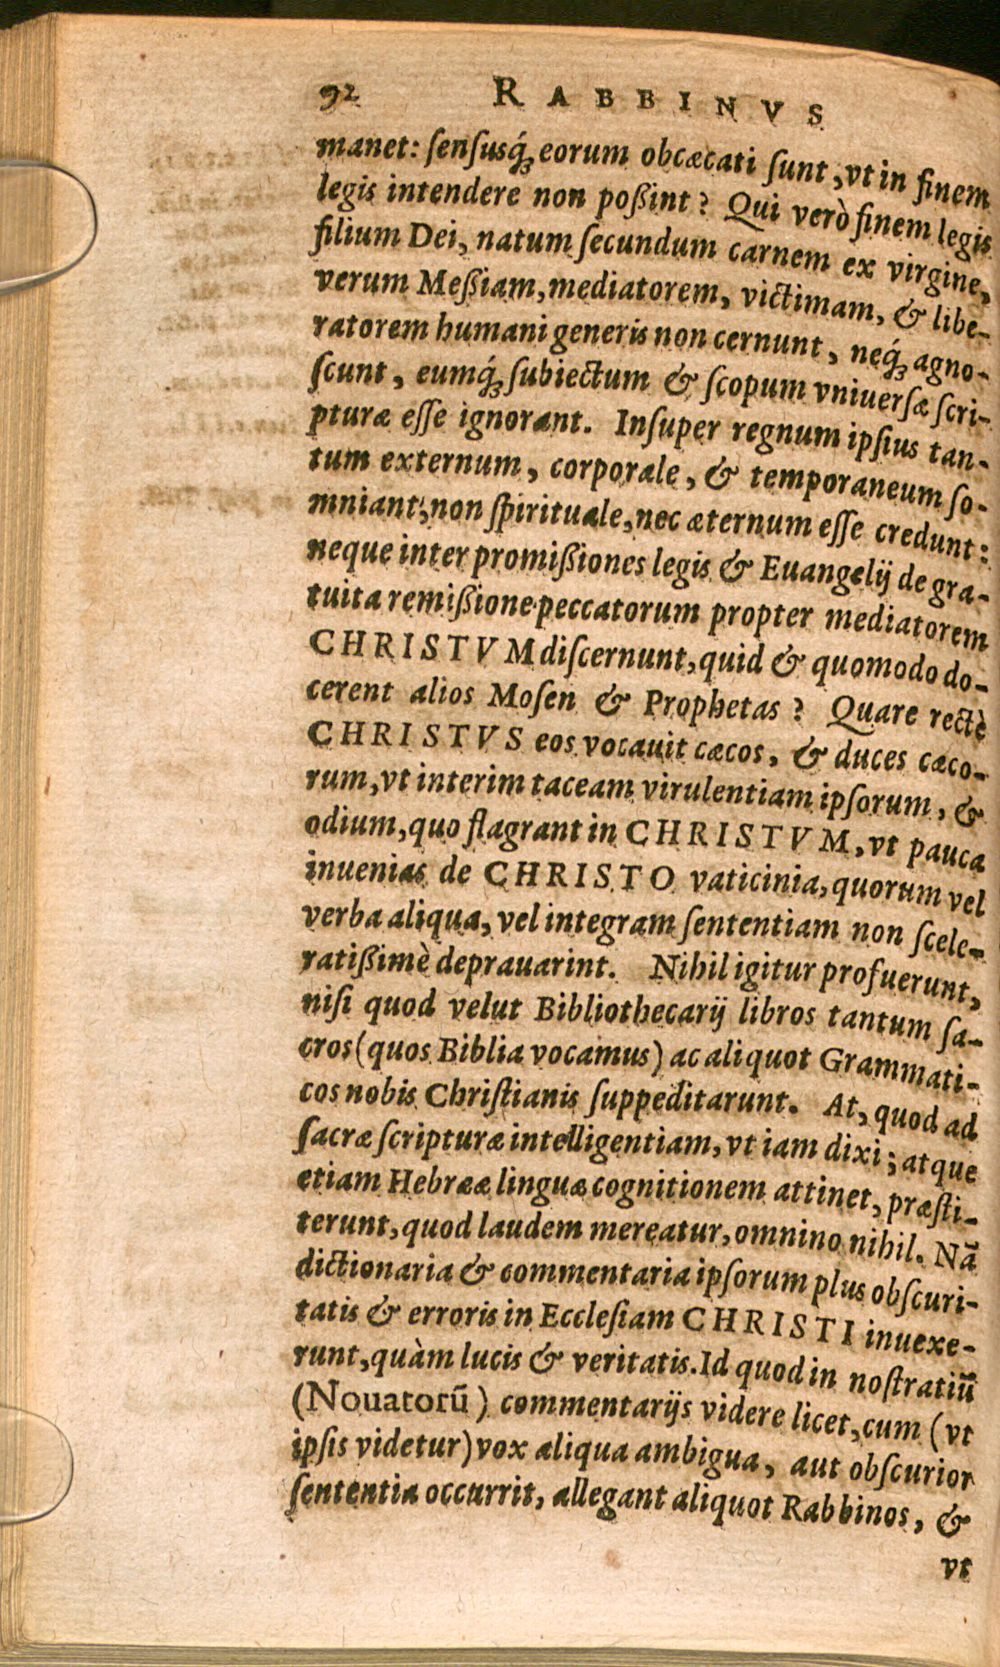 92 RABBINVS
manet: ſenſusq́ꝫ eorum obcæcati ſunt, vt in finem
legis intendere non poßint? Qui verò finem legis
filium Dei, natum ſecundum carnem ex virgine,
verum Meßiam, mediatorem, victimam, & libe-
ratorem humani generis non cernunt, neq́ꝫ agno-
ſcunt, eumq́ꝫ ſubiectum & ſcopum vniuerſæ ſcri-
pturæ eſſe ignorant. Inſuper regnum ipſius tan-
tum externum, corporale, & temporaneum ſo-
mniant, non ſpirituale, nec æternum eſſe credunt:
neque inter promißiones legis & Euangelij de gra-
tuita remißione peccatorum propter mediatorem
CHRISTVM diſcernunt, quid & quomodo do-
cerent alios Moſen & Prophetas? Quare rectè
CHRISTVS eos vocauit cæcos, & duces cæco-
rum, vt interim taceam virulentiam ipſorum, &
odium, quo flagrant in CHRISTVM, vt pauca
inuenias de CHRISTO vaticinia, quorum vel
verba aliqua, vel integram ſententiam non ſcele-
ratißimè deprauarint. Nihil igitur profuerunt,
niſi quod velut Bibliothecarij libros tantum ſa-
cros (quos Biblia vocamus) ac aliquot Grammati-
cos nobis Chriſtianis ſuppeditarunt. At, quod ad
ſacræ ſcripturæ intelligentiam, vt iam dixi; atque
etiam Hebrææ linguæ cognitionem attinet, præſti-
terunt, quod laudem mereatur, omnino nihil. Nā
dictionaria & commentaria ipſorum plus obſcuri-
tatis & erroris in Eccleſiam CHRISTI inuexe-
runt, quàm lucis & veritatis. Id quod in noſtratiū
(Nouatorū) commentarijs videre licet, cum (vt
ipſis videtur) vox aliqua ambigua, aut obſcurior
ſententia occurrit, allegant aliquot Rabbinos, &
vt